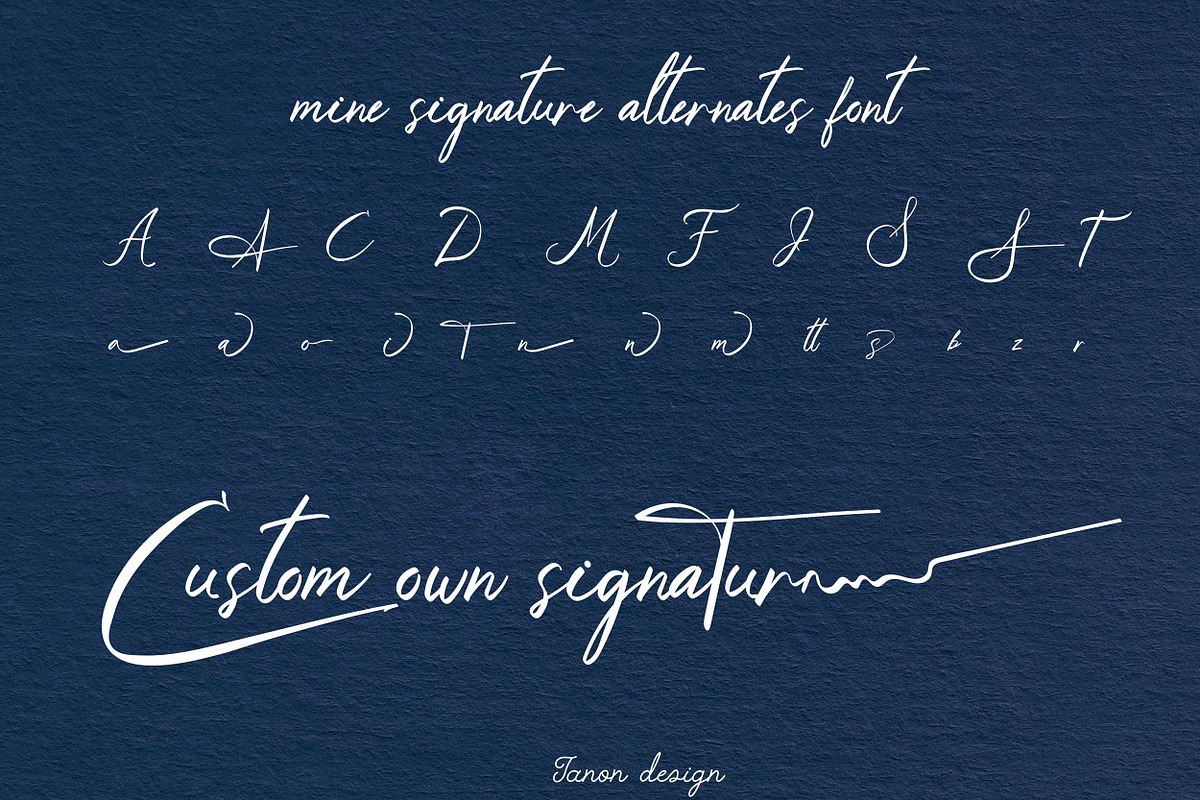 mine signature alternates font
A A C D M F J S S T
a a o i T n n m tt s b z r
Custom own signatur
Tanon design